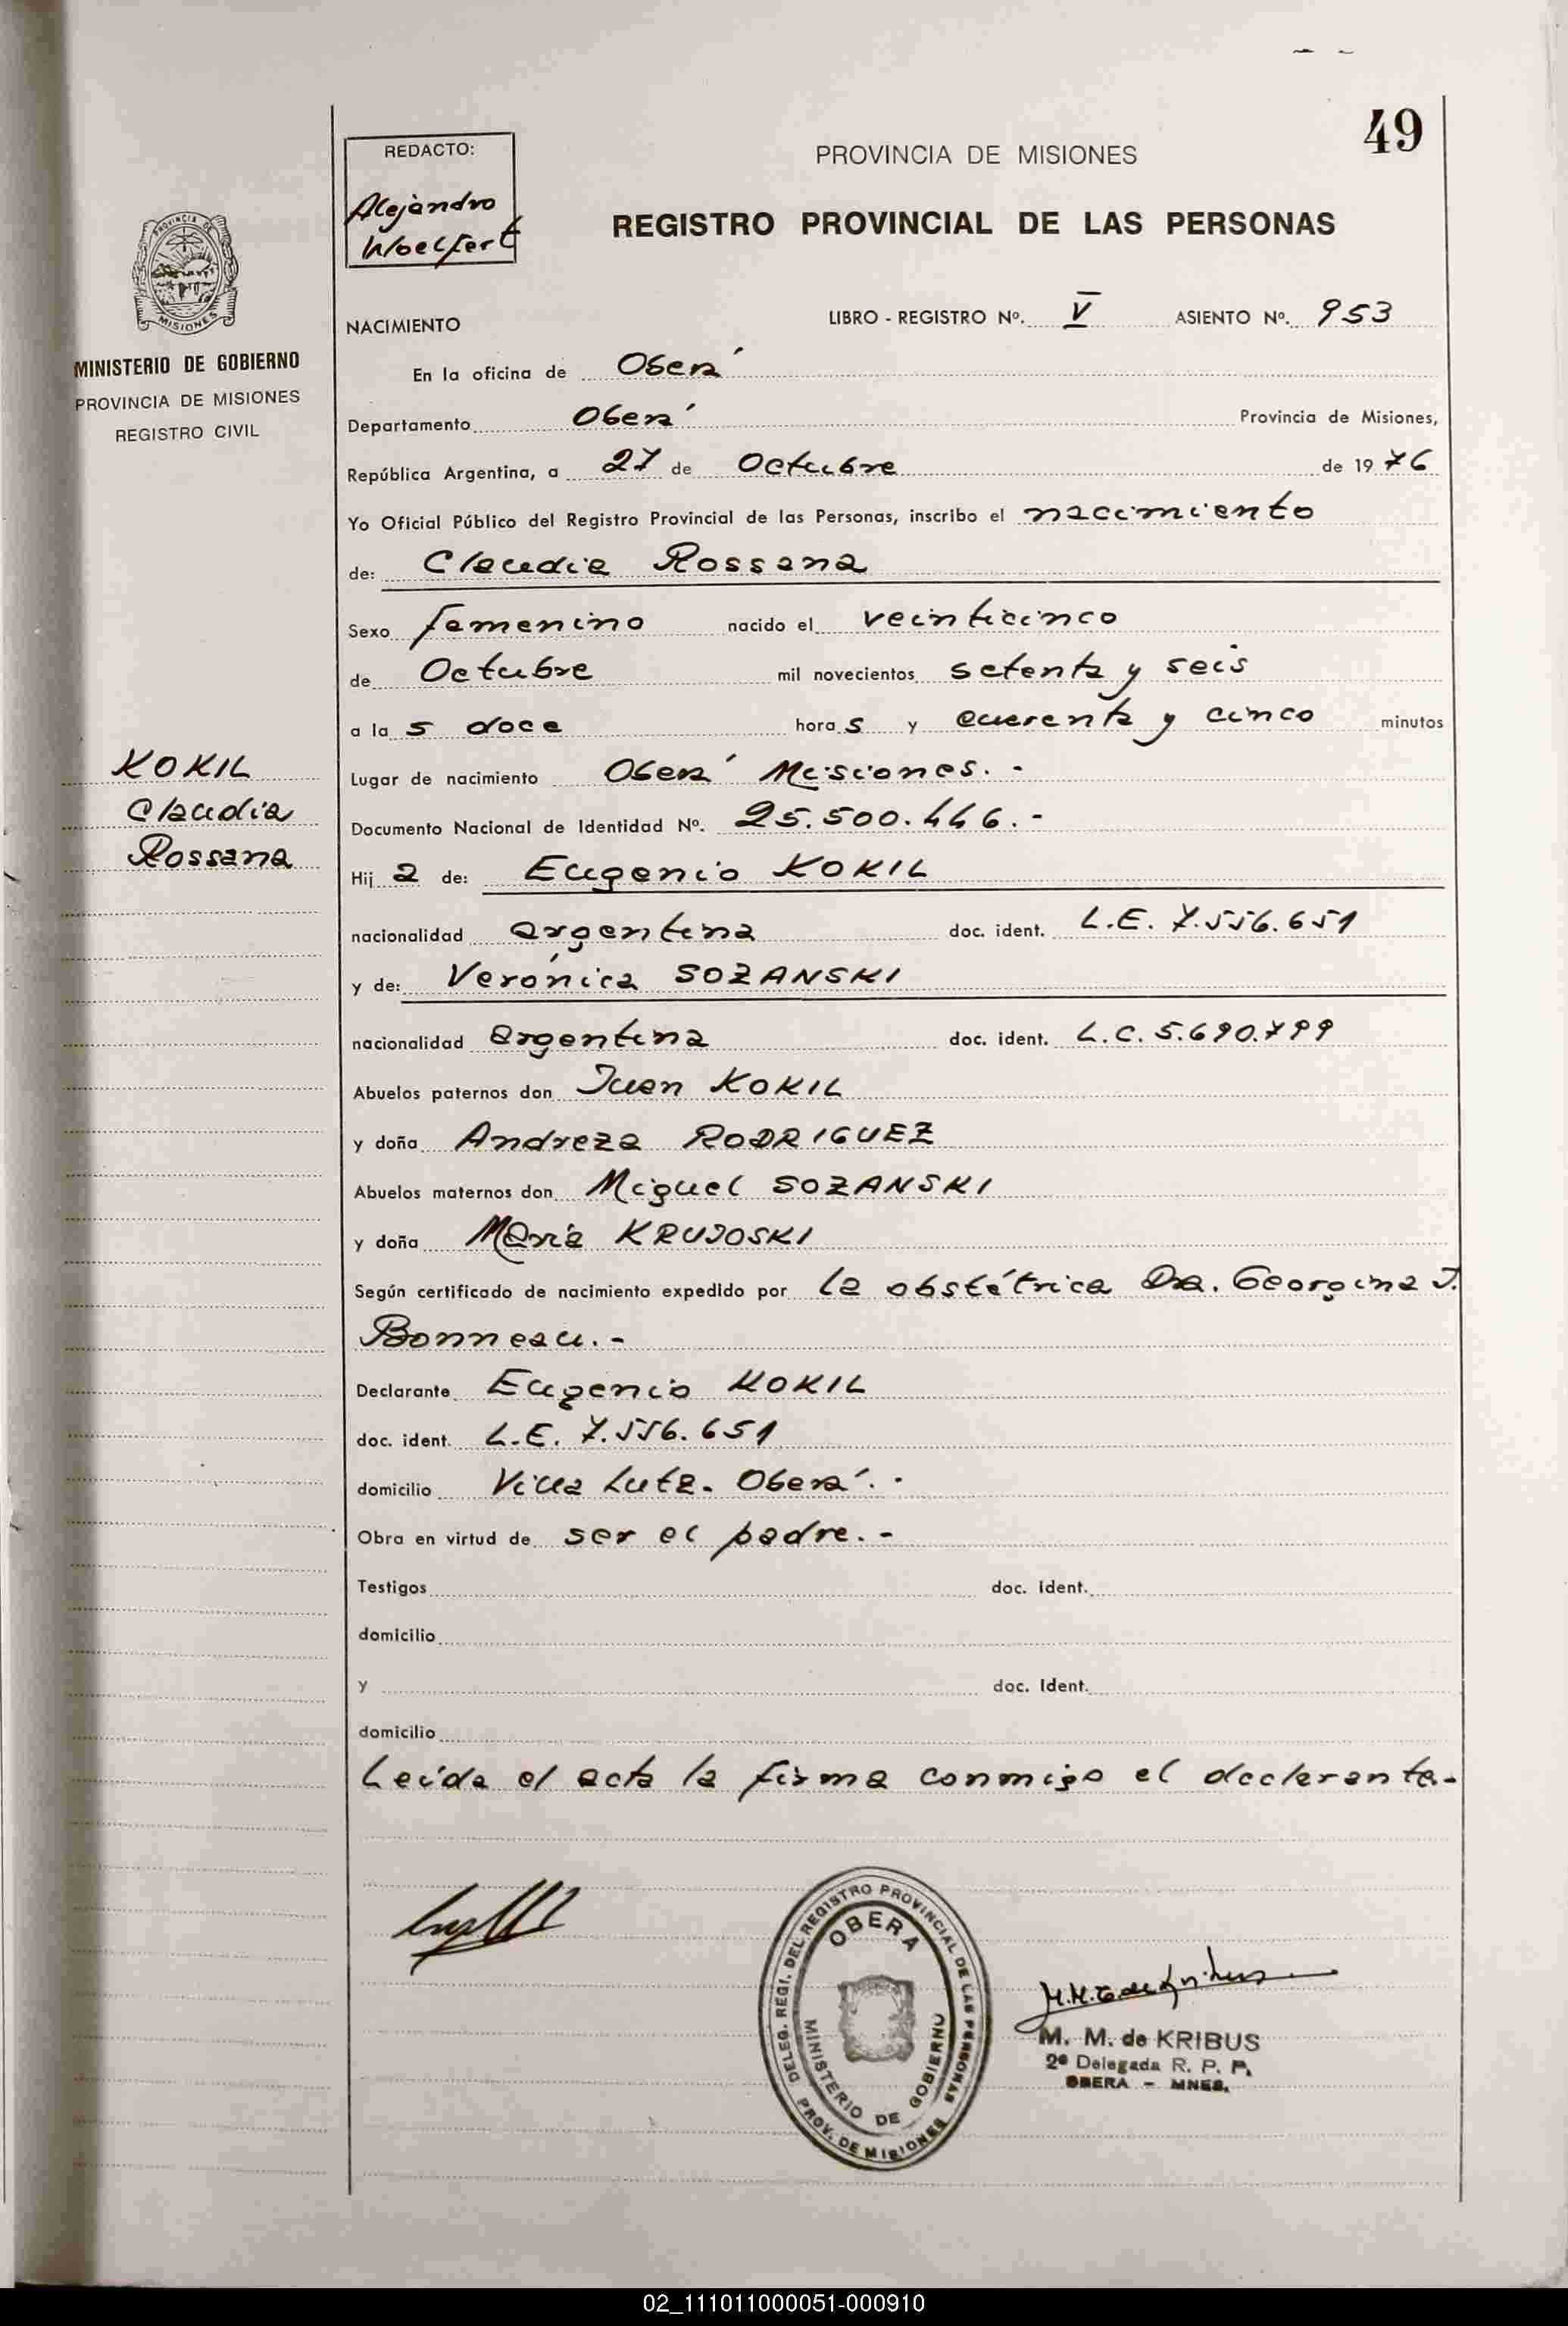 49
REDACTO:
Alejandro
Woelfert
PROVINCIA DE MISIONES
REGISTRO PROVINCIAL DE LAS PERSONAS
PROVINCIA DE
MISIONES
MINISTERIO DE GOBIERNO
PROVINCIA DE MISIONES
REGISTRO CIVIL
NACIMIENTO
LIBRO - REGISTRO Nº. V ASIENTO Nº. 953
En la oficina de Oberá
Departamento Oberá Provincia de Misiones,
República Argentina, a 27 de Octubre de 1976
Yo Oficial Público del Registro Provincial de las Personas, inscribo el nacimiento
de: Claudia Rossana
Sexo femenino nacido el veinticinco
de Octubre mil novecientos setenta y seis
a la s doce hora s y cuarenta y cinco minutos
KOKIL
Claudia
Rossana
Lugar de nacimiento Oberá Misiones.-
Documento Nacional de Identidad Nº. 25.500.446.-
Hij a de: Eugenio KOKIL
nacionalidad argentina doc. ident. L.E. 7.556.651
y de: Verónica SOZANSKI
nacionalidad argentina doc. ident. L.C. 5.690.799
Abuelos paternos don Juan KOKIL
y doña Andreza RODRIGUEZ
Abuelos maternos don Miguel SOZANSKI
y doña María KRUJOSKI
Según certificado de nacimiento expedido por la obstétrica Dra. Georgina J.
Bonneau.-
Declarante Eugenio KOKIL
doc. ident. L.E. 7.556.651
domicilio Villa Lutz. Oberá.-
Obra en virtud de ser el padre.-
Testigos doc. ident.
domicilio
y doc. ident.
domicilio
Leída el acta la firma conmigo el declarante.-
DELEG. REGI. DEL REGISTRO PROVINCIAL DE LAS PERSONAS
OBERA
MINISTERIO DE GOBIERNO
PROV. DE MISIONES
M. M. de KRIBUS
2ª Delegada R. P. P.
OBERA - MNES.
02_111011000051-000910